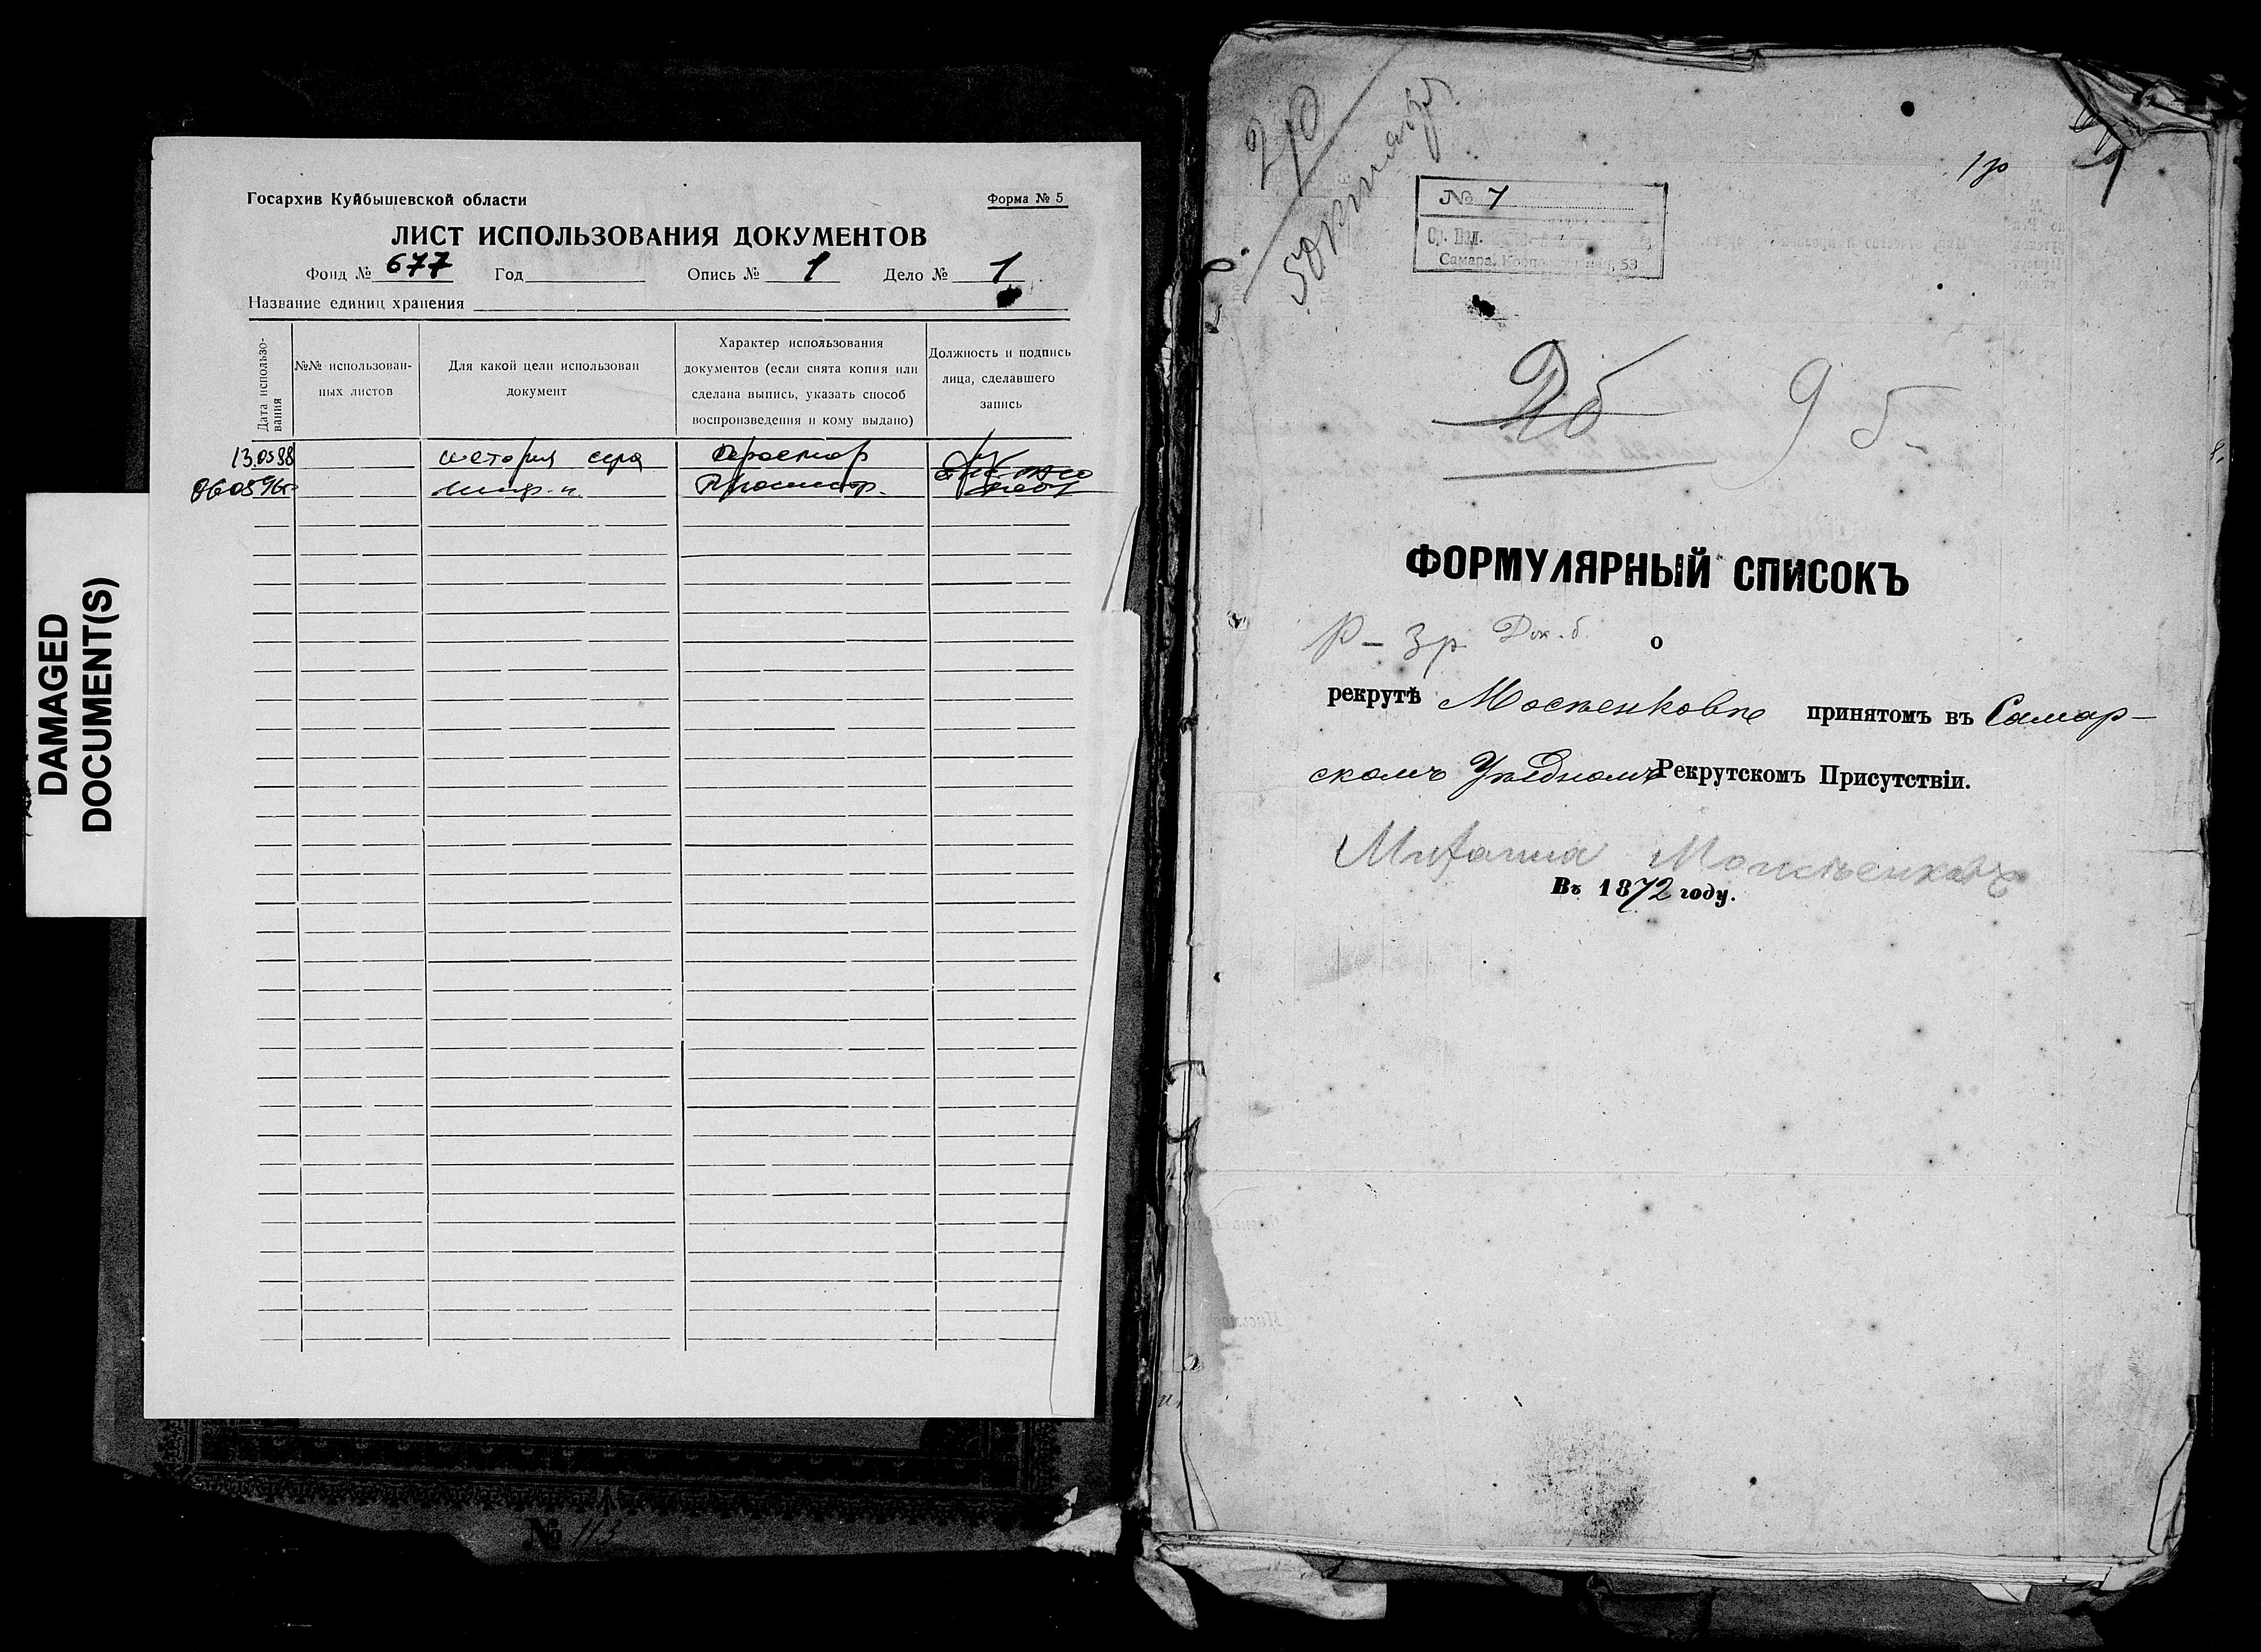 DAMAGED
DOCUMENT(S)
Госархив Куйбышевской области
Форма № 5
ЛИСТ ИСПОЛЬЗОВАНИЯ ДОКУМЕНТОВ
Фонд № 677 Год Опись № 1 Дело № 1
Название единиц хранения
Дата использо-
вания
№№ использован-
ных листов
Для какой цели использован
документ
Характер использования
документов (если снята копия или
сделана выпись, указать способ
воспроизведения и кому выдано)
Должность и подпись
лица, сделавшего
запись
13.05 88 история села просмотр
06 05 96г просмотр.
№ 113
№ 7
Ср. Вол.
Самара, 53
9 б
ФОРМУЛЯРНЫЙ СПИСОКЪ
Р - 3р
о
рекрутѣ Мосѣенковѣ принятомъ въ Самар-
скомъ Уѣздномъ Рекрутскомъ Присутствіи.
Въ 1872 году.